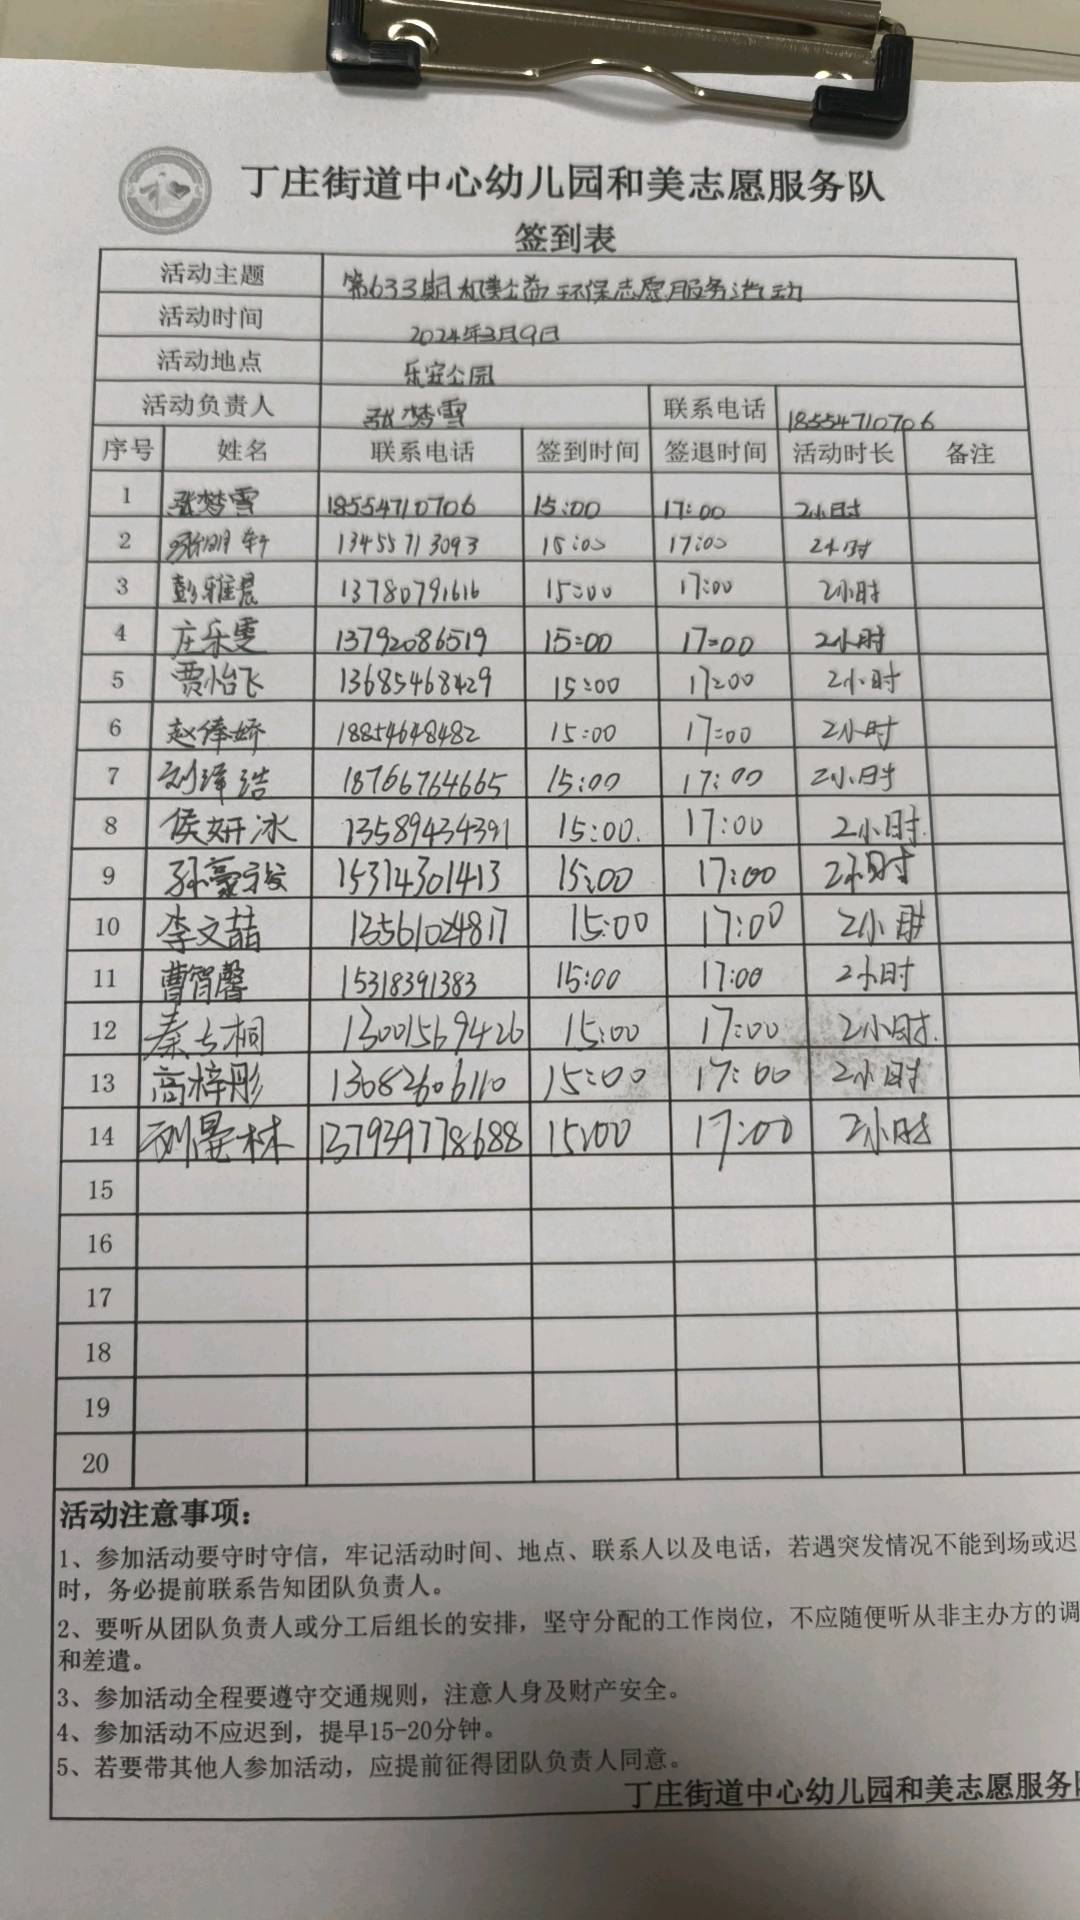 丁庄街道中心幼儿园和美志愿服务队
签到表
活动主题 第633期和美公益环保志愿服务活动
活动时间 2024年3月9日
活动地点 乐安公园
活动负责人 张梦雪 联系电话 18554710706
序号 姓名 联系电话 签到时间 签退时间 活动时长 备注
1 张梦雪 18554710706 15:00 17:00 2小时
2 13455713093 15:00 17:00 2小时
3 彭雅晨 13780791616 15:00 17:00 2小时
4 庄乐雯 13792086519 15:00 17:00 2小时
5 贾怡飞 13685468429 15:00 17:00 2小时
6 赵俸娇 18854648482 15:00 17:00 2小时
7 刘泽浩 18766764665 15:00 17:00 2小时
8 侯妍冰 13589434391 15:00. 17:00 2小时.
9 孙豪骏 15314301413 15:00 17:00 2小时
10 李文喆 13561024817 15:00 17:00 2小时
11 曹智馨 15318391383 15:00 17:00 2小时
12 秦士桐 13001569426 15:00 17:00 2小时.
13 高梓彤 13082606110 15:00 17:00 2小时
14 林 137939778688 15:00 17:00 2小时
15
16
17
18
19
20
活动注意事项：
1、参加活动要守时守信，牢记活动时间、地点、联系人以及电话，若遇突发情况不能到场或迟
时，务必提前联系告知团队负责人。
2、要听从团队负责人或分工后组长的安排，坚守分配的工作岗位，不应随便听从非主办方的调
和差遣。
3、参加活动全程要遵守交通规则，注意人身及财产安全。
4、参加活动不应迟到，提早15-20分钟。
5、若要带其他人参加活动，应提前征得团队负责人同意。
丁庄街道中心幼儿园和美志愿服务